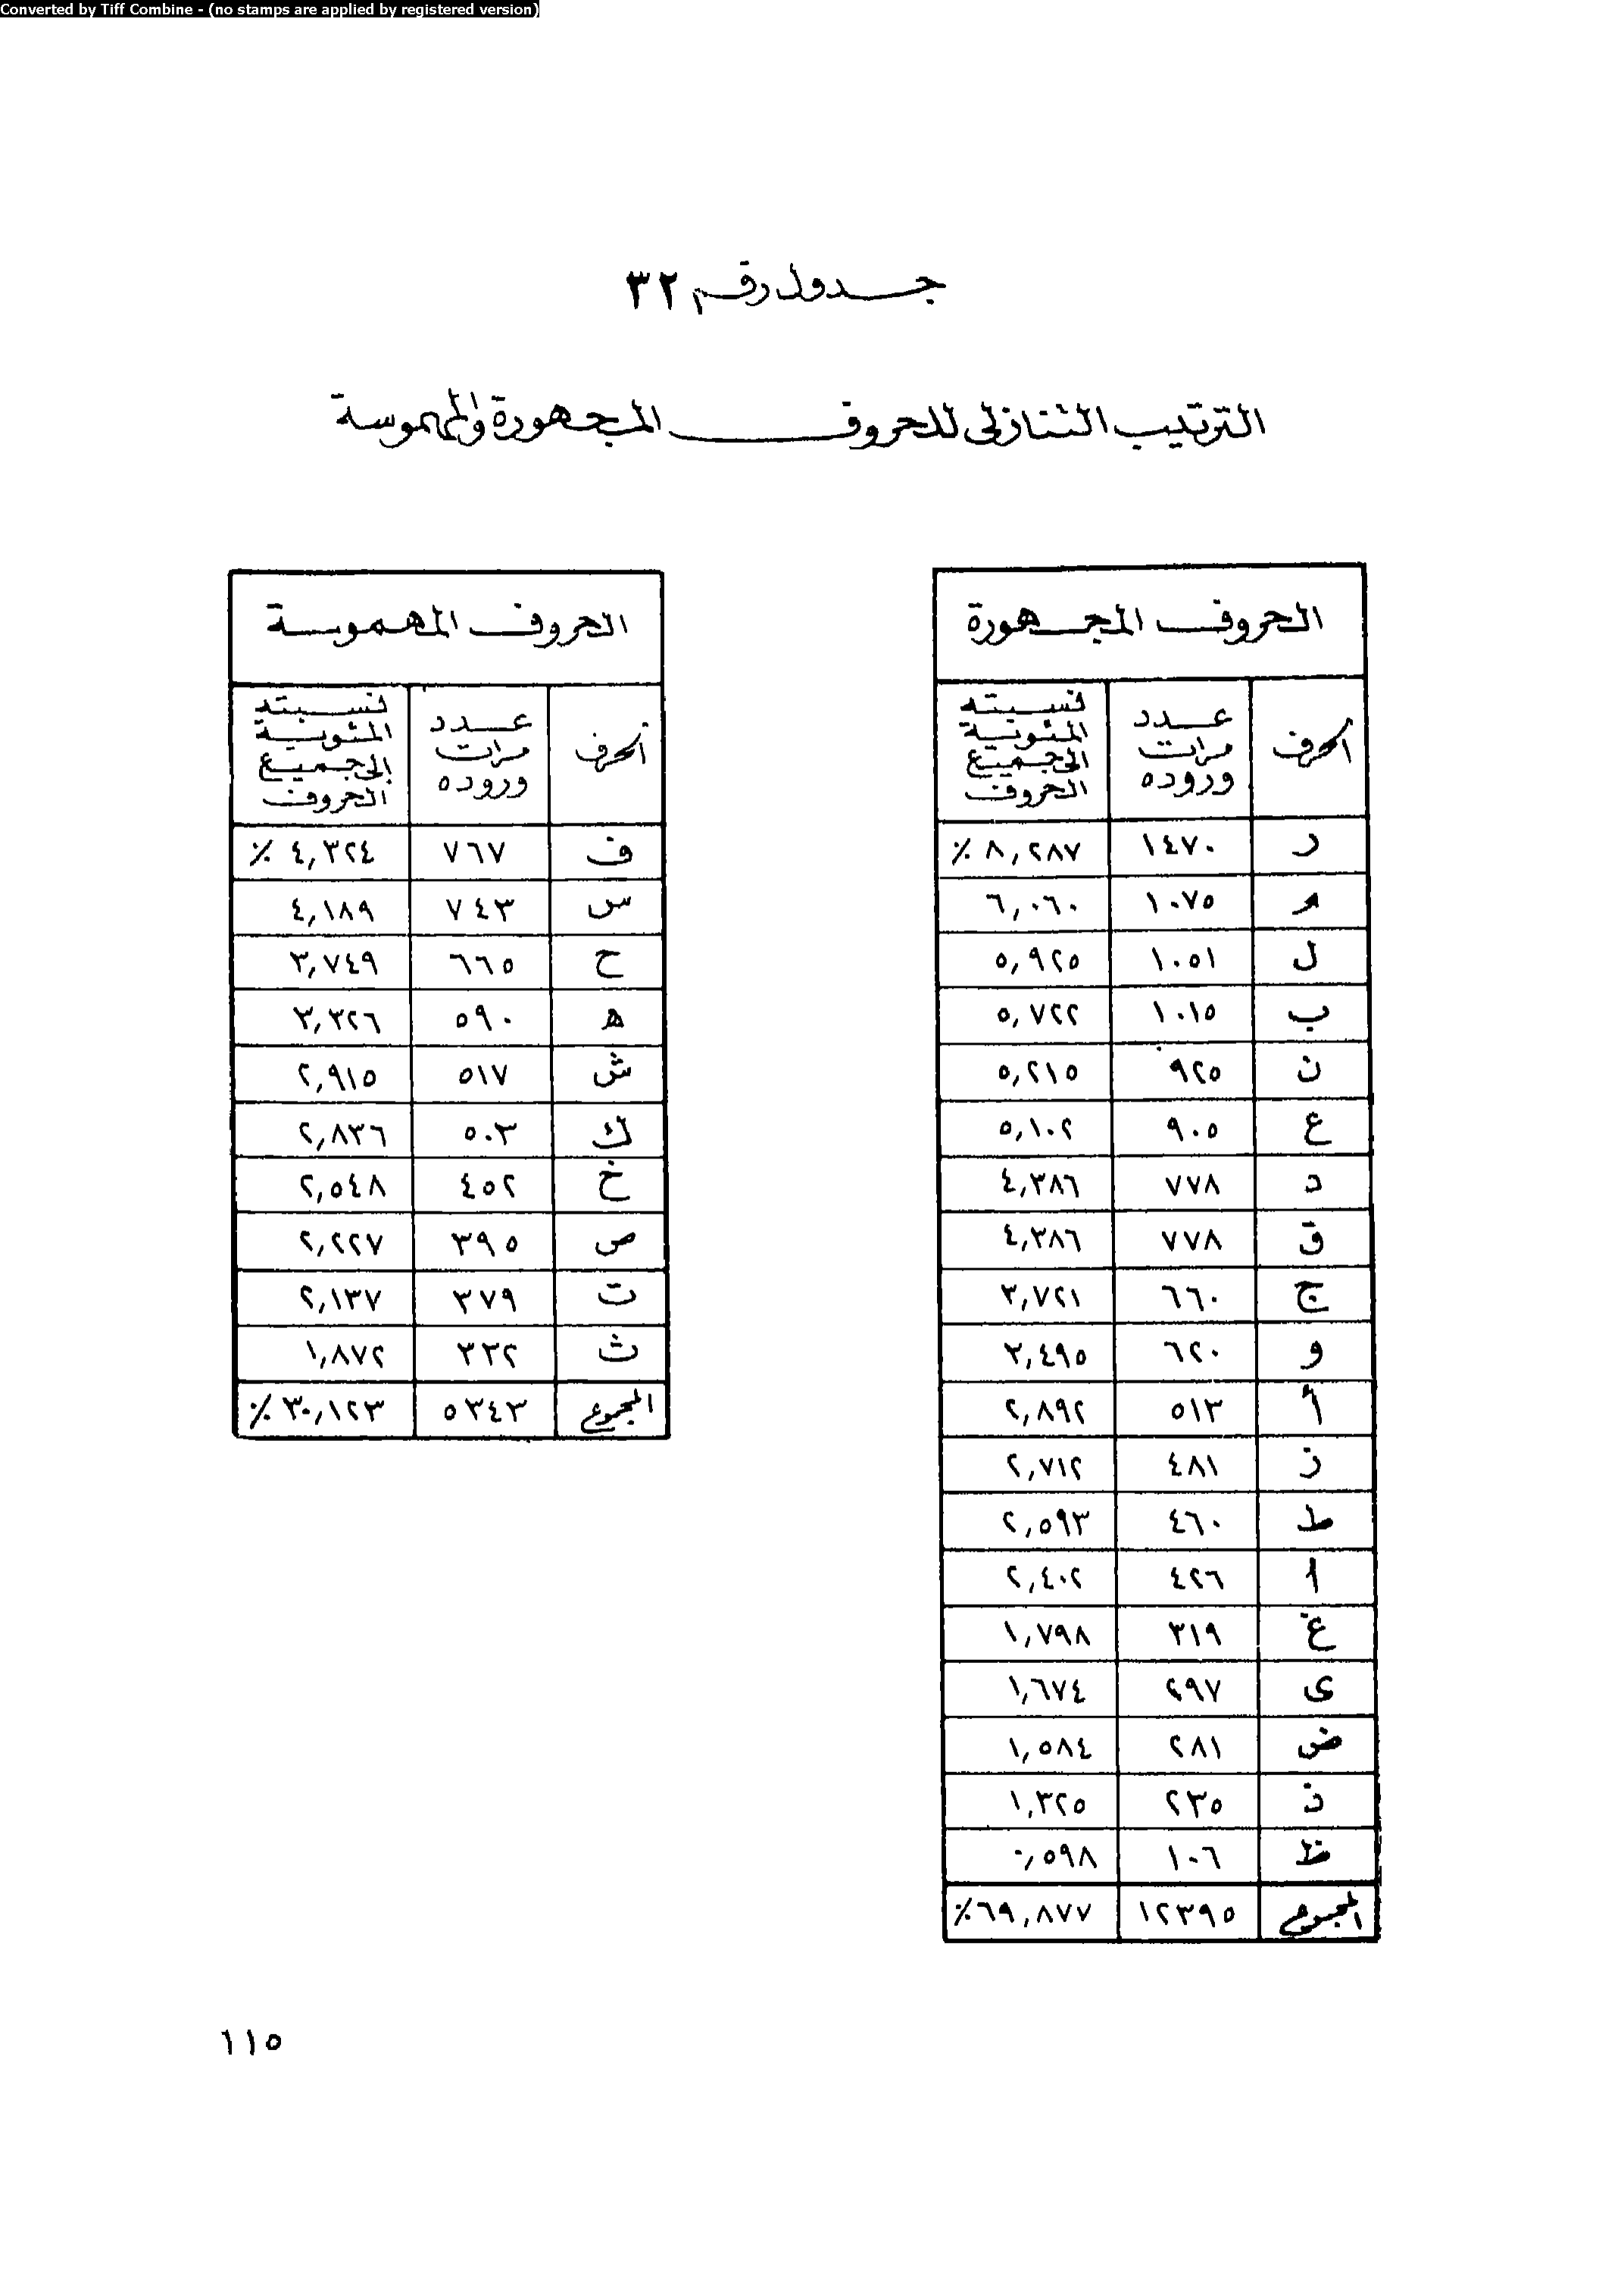 Converted by Tiff Combine - (no stamps are applied by registered version)
جدول رقم ٣٢
الترتيب التنازلى للحروف المجهورة والمهموسة
الحروف المجهورة
الحرف | عدد مرات وروده | نسبته المئوية الى جميع الحروف
ر | ١٤٧٠ | ٨,٢٨٧ ٪
م | ١٠٧٥ | ٦,٠٦٠
ل | ١٠٥١ | ٥,٩٢٥
ب | ١٠١٥ | ٥,٧٢٢
ن | ٩٢٥ | ٥,٢١٥
ع | ٩٠٥ | ٥,١٠٢
د | ٧٧٨ | ٤,٣٨٦
ق | ٧٧٨ | ٤,٣٨٦
ج | ٦٦٠ | ٣,٧٢١
و | ٦٢٠ | ٣,٤٩٥
أ | ٥١٣ | ٢,٨٩٢
ز | ٤٨١ | ٢,٧١٢
ط | ٤٦٠ | ٢,٥٩٣
ا | ٤٢٦ | ٢,٤٠٢
غ | ٣١٩ | ١,٧٩٨
ى | ٢٩٧ | ١,٦٧٤
ض | ٢٨١ | ١,٥٨٤
ذ | ٢٣٥ | ١,٣٢٥
ظ | ١٠٦ | ٠,٥٩٨
المجموع | ١٢٣٩٥ | ٦٩,٨٧٧٪
الحروف المهموسة
الحرف | عدد مرات وروده | نسبته المئوية إلى جميع الحروف
ف | ٧٦٧ | ٤,٣٢٤ ٪
س | ٧٤٣ | ٤,١٨٩
ح | ٦٦٥ | ٣,٧٤٩
ه | ٥٩٠ | ٣,٣٢٦
ش | ٥١٧ | ٢,٩١٥
ك | ٥٠٣ | ٢,٨٣٦
خ | ٤٥٢ | ٢,٥٤٨
ص | ٣٩٥ | ٢,٢٢٧
ت | ٣٧٩ | ٢,١٣٧
ث | ٣٣٢ | ١,٨٧٢
المجموع | ٥٣٤٣ | ٣٠,١٢٣٪
١١٥